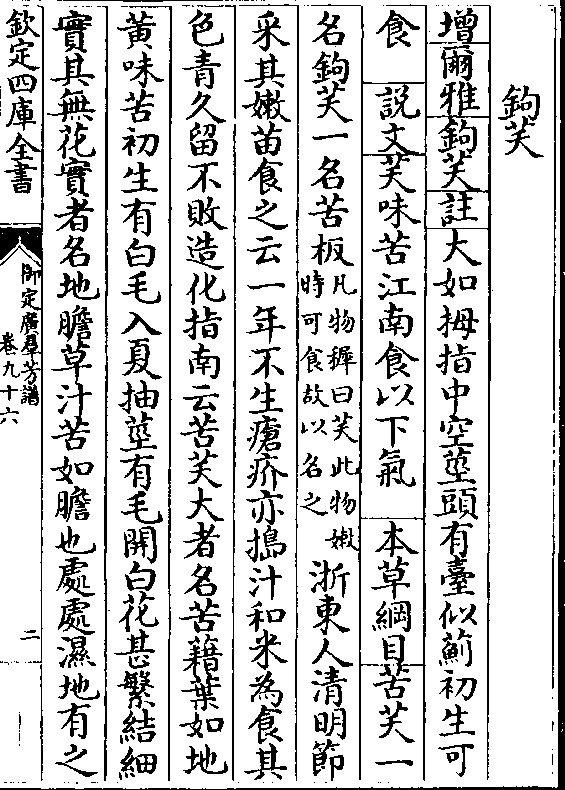 鉤芺
增爾雅鉤芺註大如拇指中空莖頭有臺似薊初生可
食　説文芺味苦江南食以下氣　本草綱目苦芺一
名鉤芺一名苦板凡物穉曰芺此物嫩
時可食故以名之浙東人清明節
采其嫩苗食之云一年不生瘡疥亦擣汁和米為食其
色青久留不敗造化指南云苦芺大者名苦藉葉如地
黄味苦初生有白毛入夏抽莖有毛開白花甚繁結細
實其無花實者名地膽草汁苦如膽也處處濕地有之
欽定四庫全書
御定廣羣芳譜
卷九十六
二